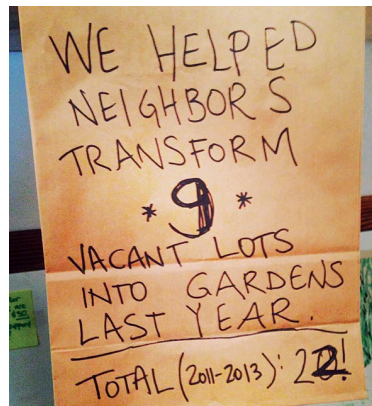 WE HELPED
NEIGHBORS
TRANSFORM
* 9 *
VACANT LOTS
INTO GARDENS
LAST YEAR.
TOTAL (2011-2013): 22!
are
$50